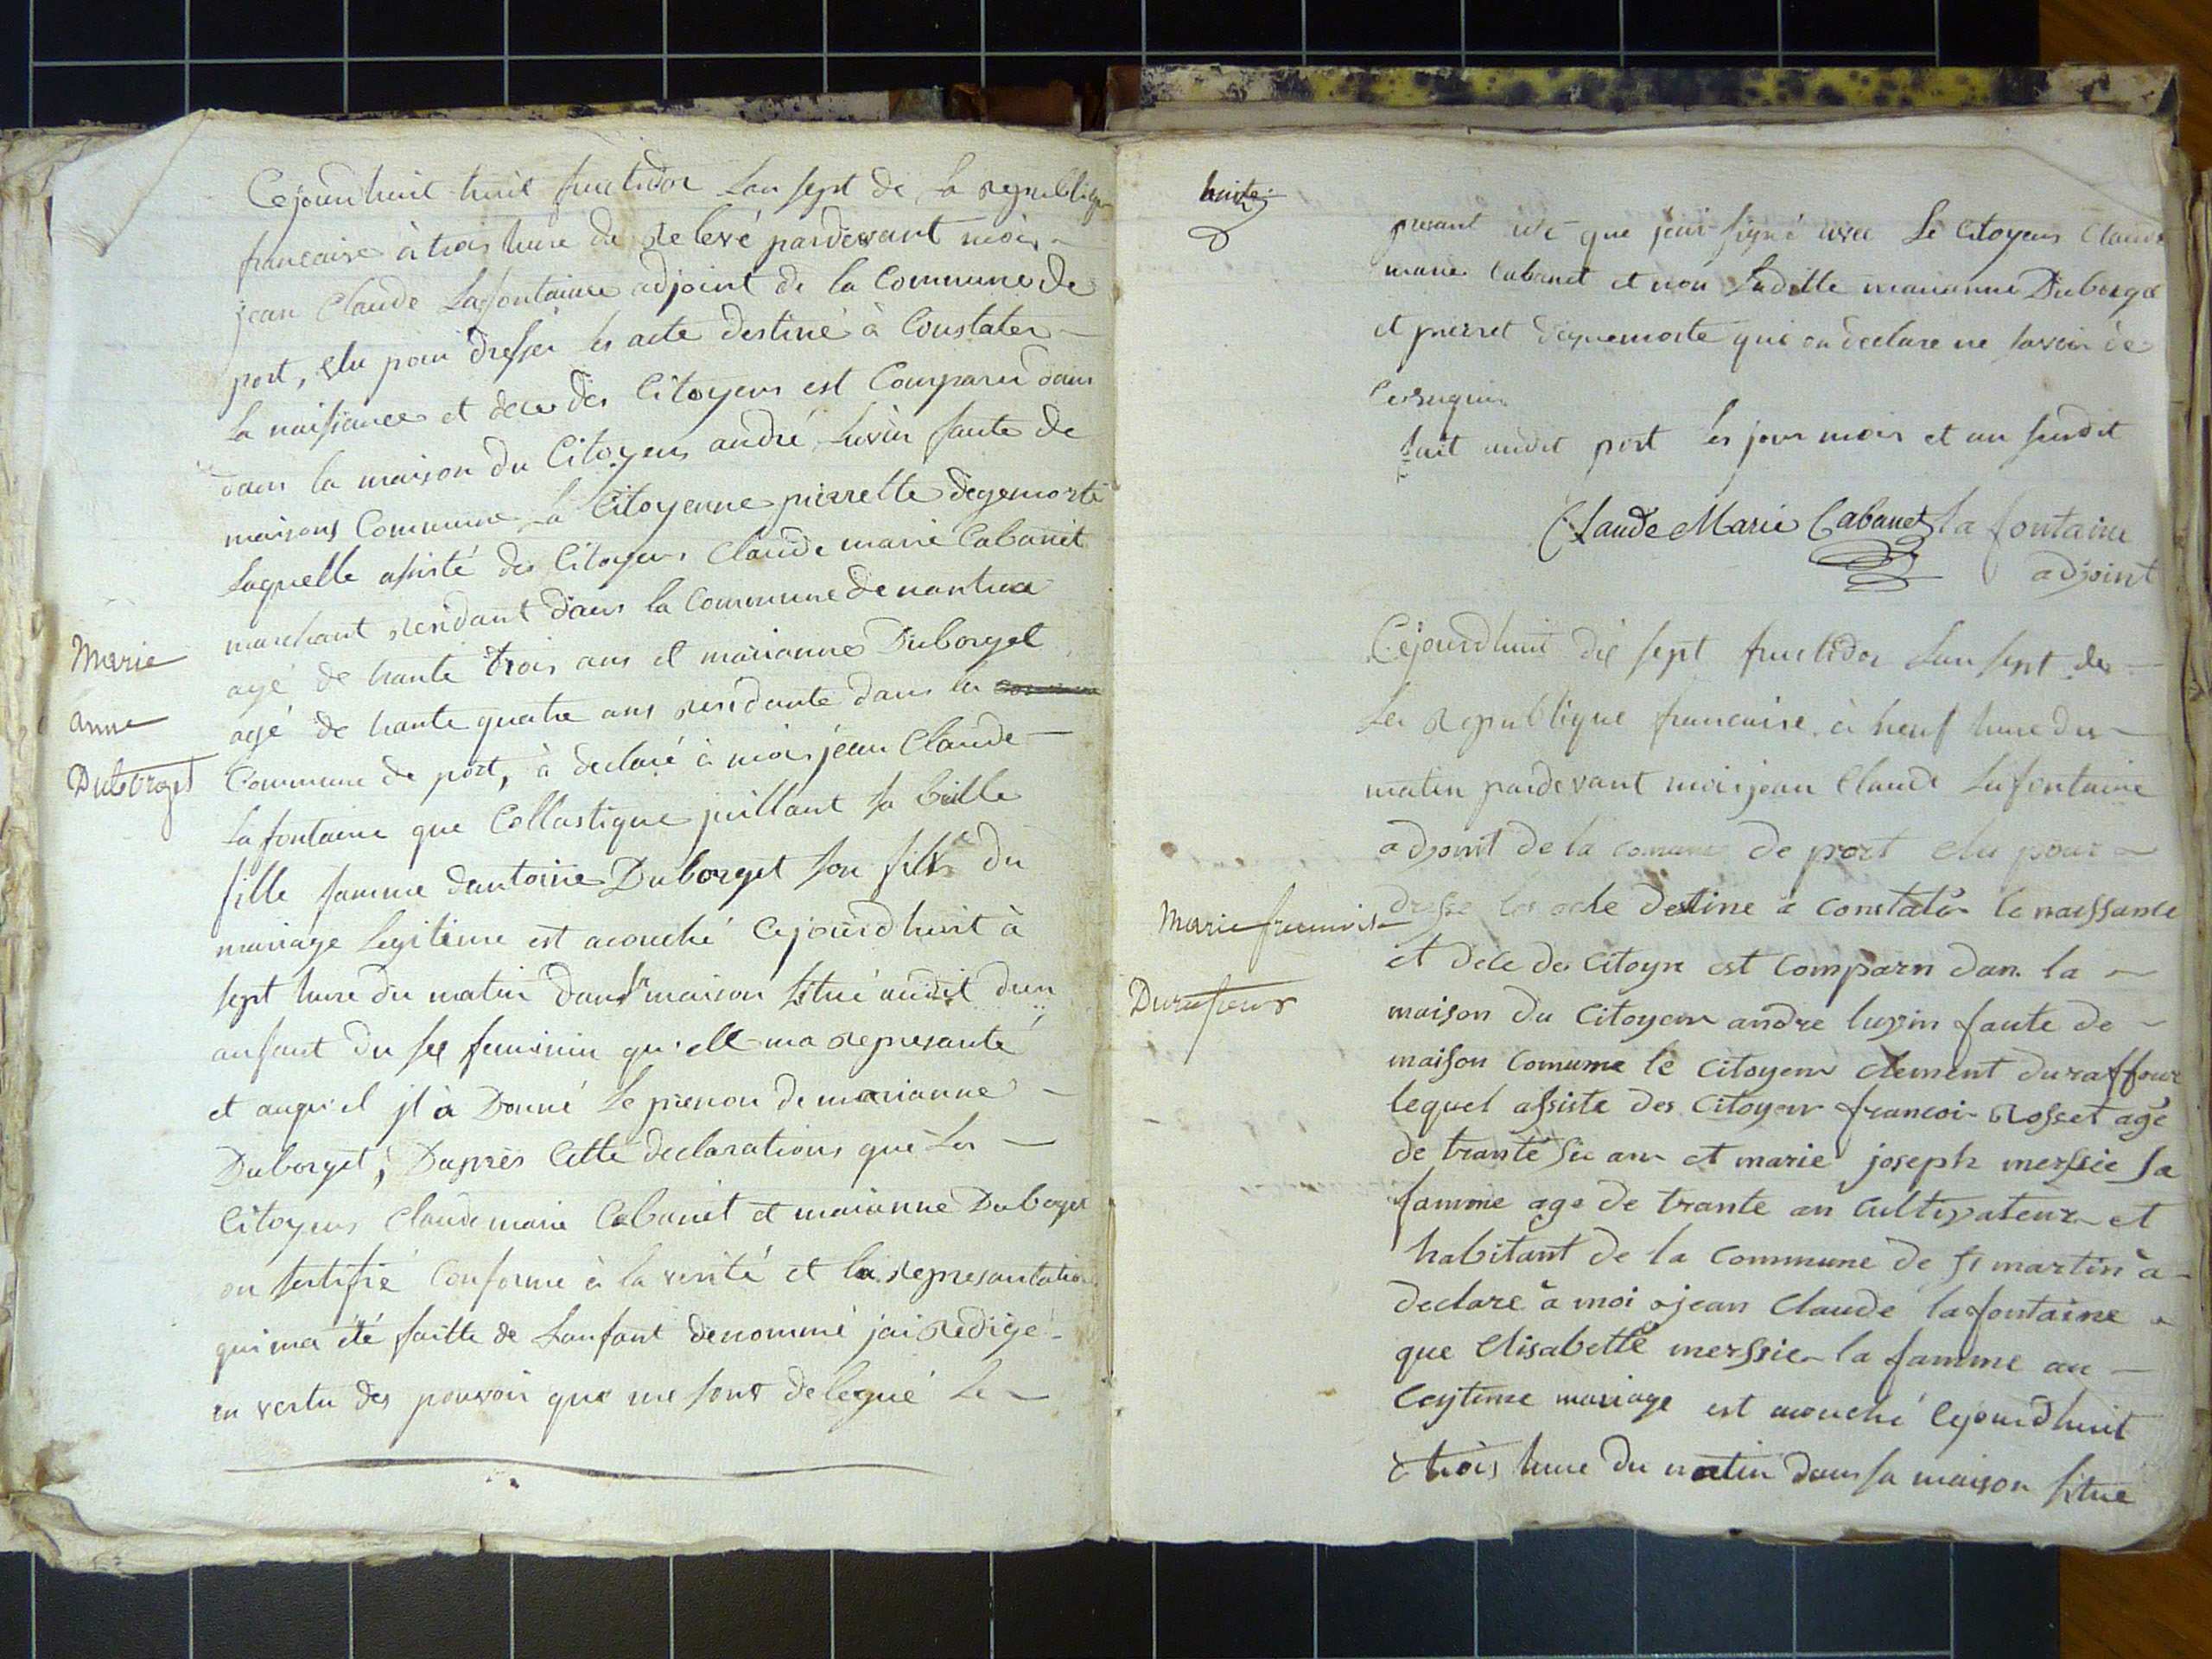 Cejourdhuit huit fructidor Lan sept de La republique
francaise à trois hure de relevé pardevant moi
jean Claude Lafontaine adjoint de la Commune de
port, elu pour dresser les acte destiné à Constater
La naissance et deces des Citoyens est Comparu dans
dans la maison du Citoyen andré Luvin faute de
maisons Commune la Citoyenne pierrette degemorte
Laquelle assisté des Citoyens Claude marie Cabanet
marchant residant dans la Commune de nantua
agé de trante trois ans et marianne Duborget
agé de trante quatre ans residante dans la
Marie
anne
Duborget
Commune de port, à declaré à moi jean Claude
Lafontaine que Collastique juillant sa belle
fille famme dantoine Duborget son fils du
mariage Legitime est acouché Cejourdhuit à
sept hure du matin dans sa maison situé audit dun
anfant du sex feminin qu'elle ma represanté
et auquel jl à Donné Le prenon de marianne
Duborget, Daprès Cette declarations que Les
Citoyens Claude marie Cabanet et marianne Duborget
on sertifié Conforme à la verité et la represantation
qui ma été faitte de Lanfant denommé jai Redigé
en vertu des pouvoir que me sont delegué Le
presant acte que jai signé avec Le Citoyens Claude
marie Cabanet et non Laditte marianne Duborget
et pierret degemorte qui on declare ne savoir de
Ce requis
fait audit port les jour mois et an susdit
Claude Marie Cabanet la fontaine
adjoint
Cejourdhuit dix sept fructidor Lan sept de
La Republique francaise à neuf hure du
matin pardevant moi jean Claude Lafontaine
adjoint de la comune de port elu pour
Marie francois
Durafour
dresse les acte destine a constater la naissance
et dece des Citoyen est Comparu dan la
maison du Citoyen andre luvin faute de
maison Comune le Citoyen clement duraffour
lequel assiste des Citoyen francoi Rosset agé
de trante six an et marie joseph mersie sa
famme age de trante an Cultivateur et
habitant de la Commune de St martin à
declare à moi jean Claude lafontaine
que Elisabette merssie la famme au
Legitime mariage est acouché Cejourdhuit
à trois hure du matin dans sa maison situe